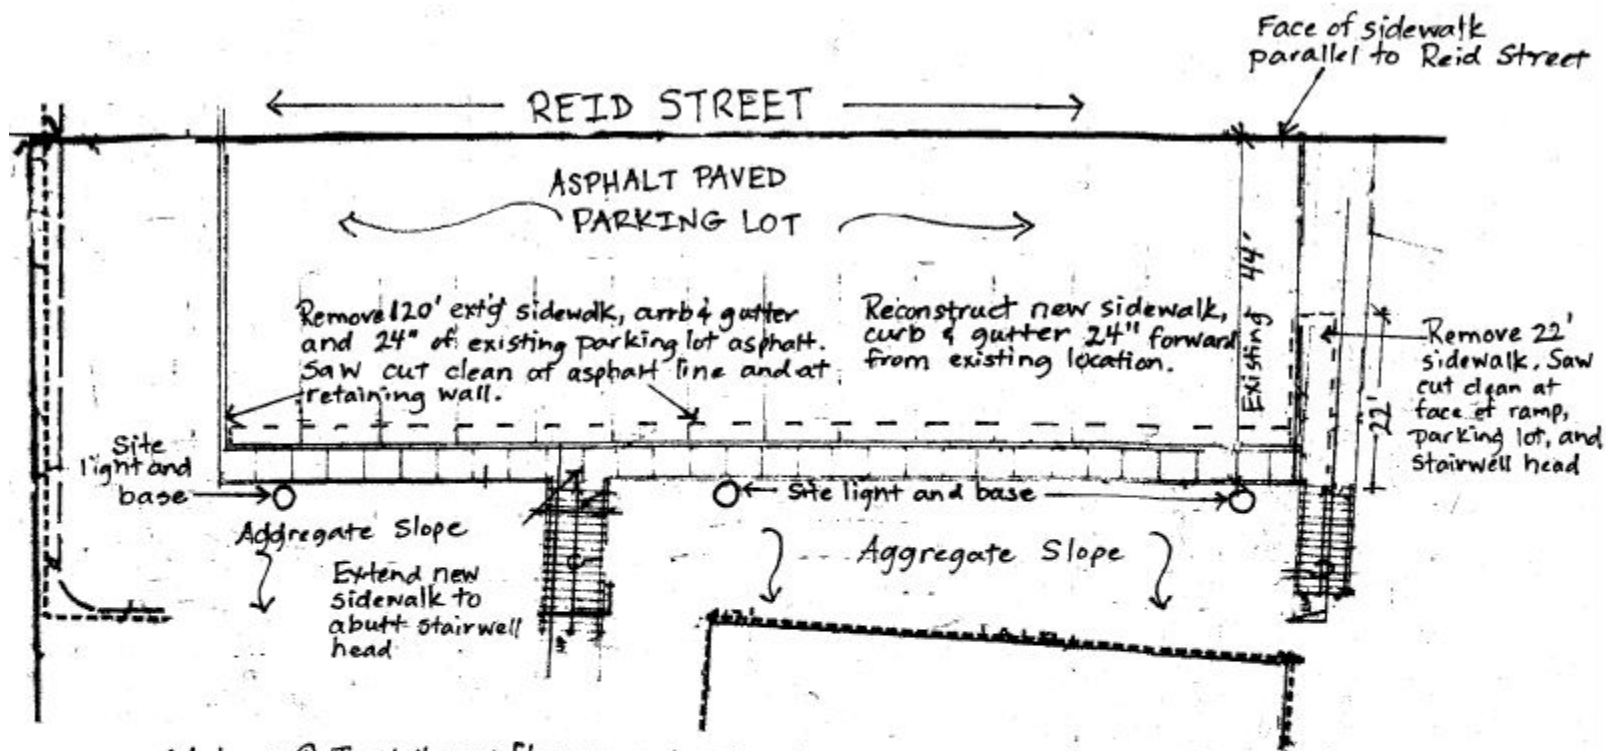 Face of sidewalk
parallel to Reid Street
REID STREET
ASPHALT PAVED
PARKING LOT
Remove 120' ext'g sidewalk, curb & gutter
and 24" of existing parking lot asphalt.
Saw cut clean at asphalt line and at
retaining wall.
Reconstruct new sidewalk,
curb & gutter 24" forward
from existing location.
Existing 44'
22'
Remove 22'
sidewalk. Saw
cut clean at
face of ramp,
parking lot, and
stairwell head
Site
light and
base
Site light and base
Aggregate Slope
Aggregate Slope
Extend new
sidewalk to
abutt stairwell
head